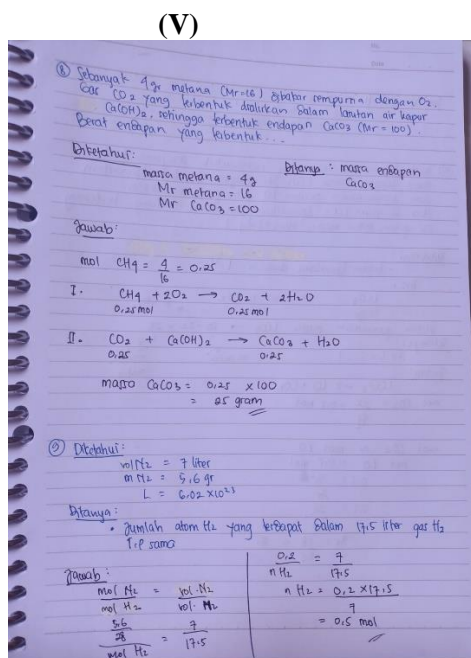 (V)
⑧ Sebanyak 4 gr metana (Mr=16) dibakar sempurna dengan O₂.
Gas CO₂ yang terbentuk dialirkan dalam larutan air kapur
Ca(OH)₂, sehingga terbentuk endapan CaCO₃ (Mr = 100).
Berat endapan yang terbentuk...
Diketahui:
massa metana = 4g
Mr metana = 16
Mr CaCO₃ = 100
Ditanya : massa endapan
CaCO₃
Jawab:
mol CH4 = 4/16 = 0,25
I. CH4 + 2O₂ → CO₂ + 2H₂O
0,25 mol 0,25 mol
II. CO₂ + Ca(OH)₂ → CaCO₃ + H₂O
0,25 0,25
massa CaCO₃ = 0,25 x 100
= 25 gram
⑨ Diketahui:
vol N₂ = 7 liter
m N₂ = 5,6 gr
L = 6.02 x 10²³
Ditanya:
• Jumlah atom H₂ yang terdapat dalam 17,5 liter gas H₂
T,P sama
Jawab:
mol N₂ / mol H₂ = vol. N₂ / vol. N₂
5,6/28 / mol H₂ = 7 / 17.5
0,2 / n H₂ = 7 / 17.5
n H₂ = 0,2 x 17.5 / 7
= 0,5 mol